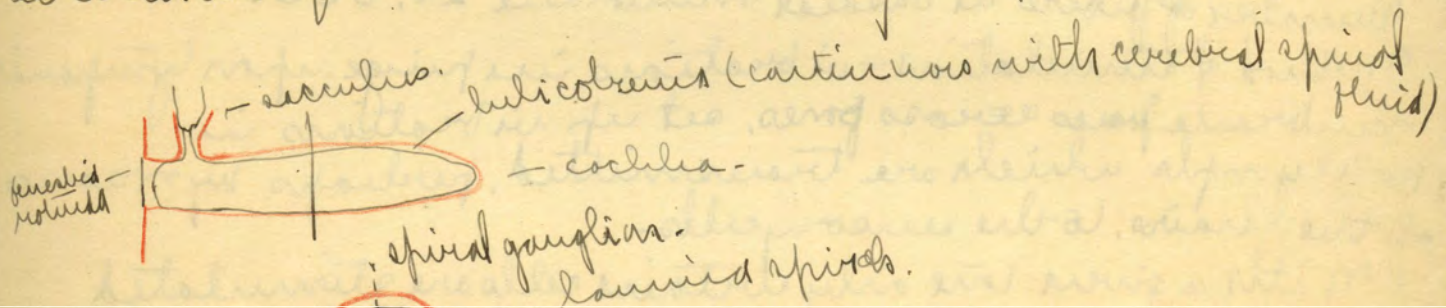 - sacculus.
helicotrema (continuous with cerebral spinal
fluid)
fenestra
rotunda
- cochlea -
spiral ganglion -
lamina spiralis.